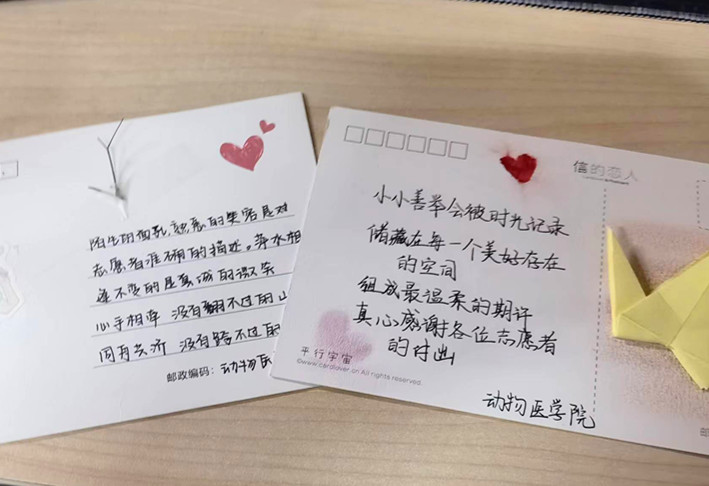 陌生的面孔,熟悉的笑容是对
志愿者准确的描述。萍水相
逢不变的是真诚的微笑
心手相牵 没有翻不过的山
同舟共济 没有跨不过的
邮政编码:动物医
信的恋人
小小善举会被时光记录
储藏在每一个美好存在
的空间
组成最温柔的期许
真心感谢各位志愿者
的付出
平行宇宙
©www.cardlover.cn All rights reserved.
动物医学院
邮